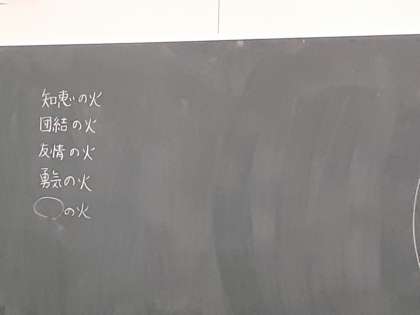 知恵の火
団結の火
友情の火
勇気の火
◯の火